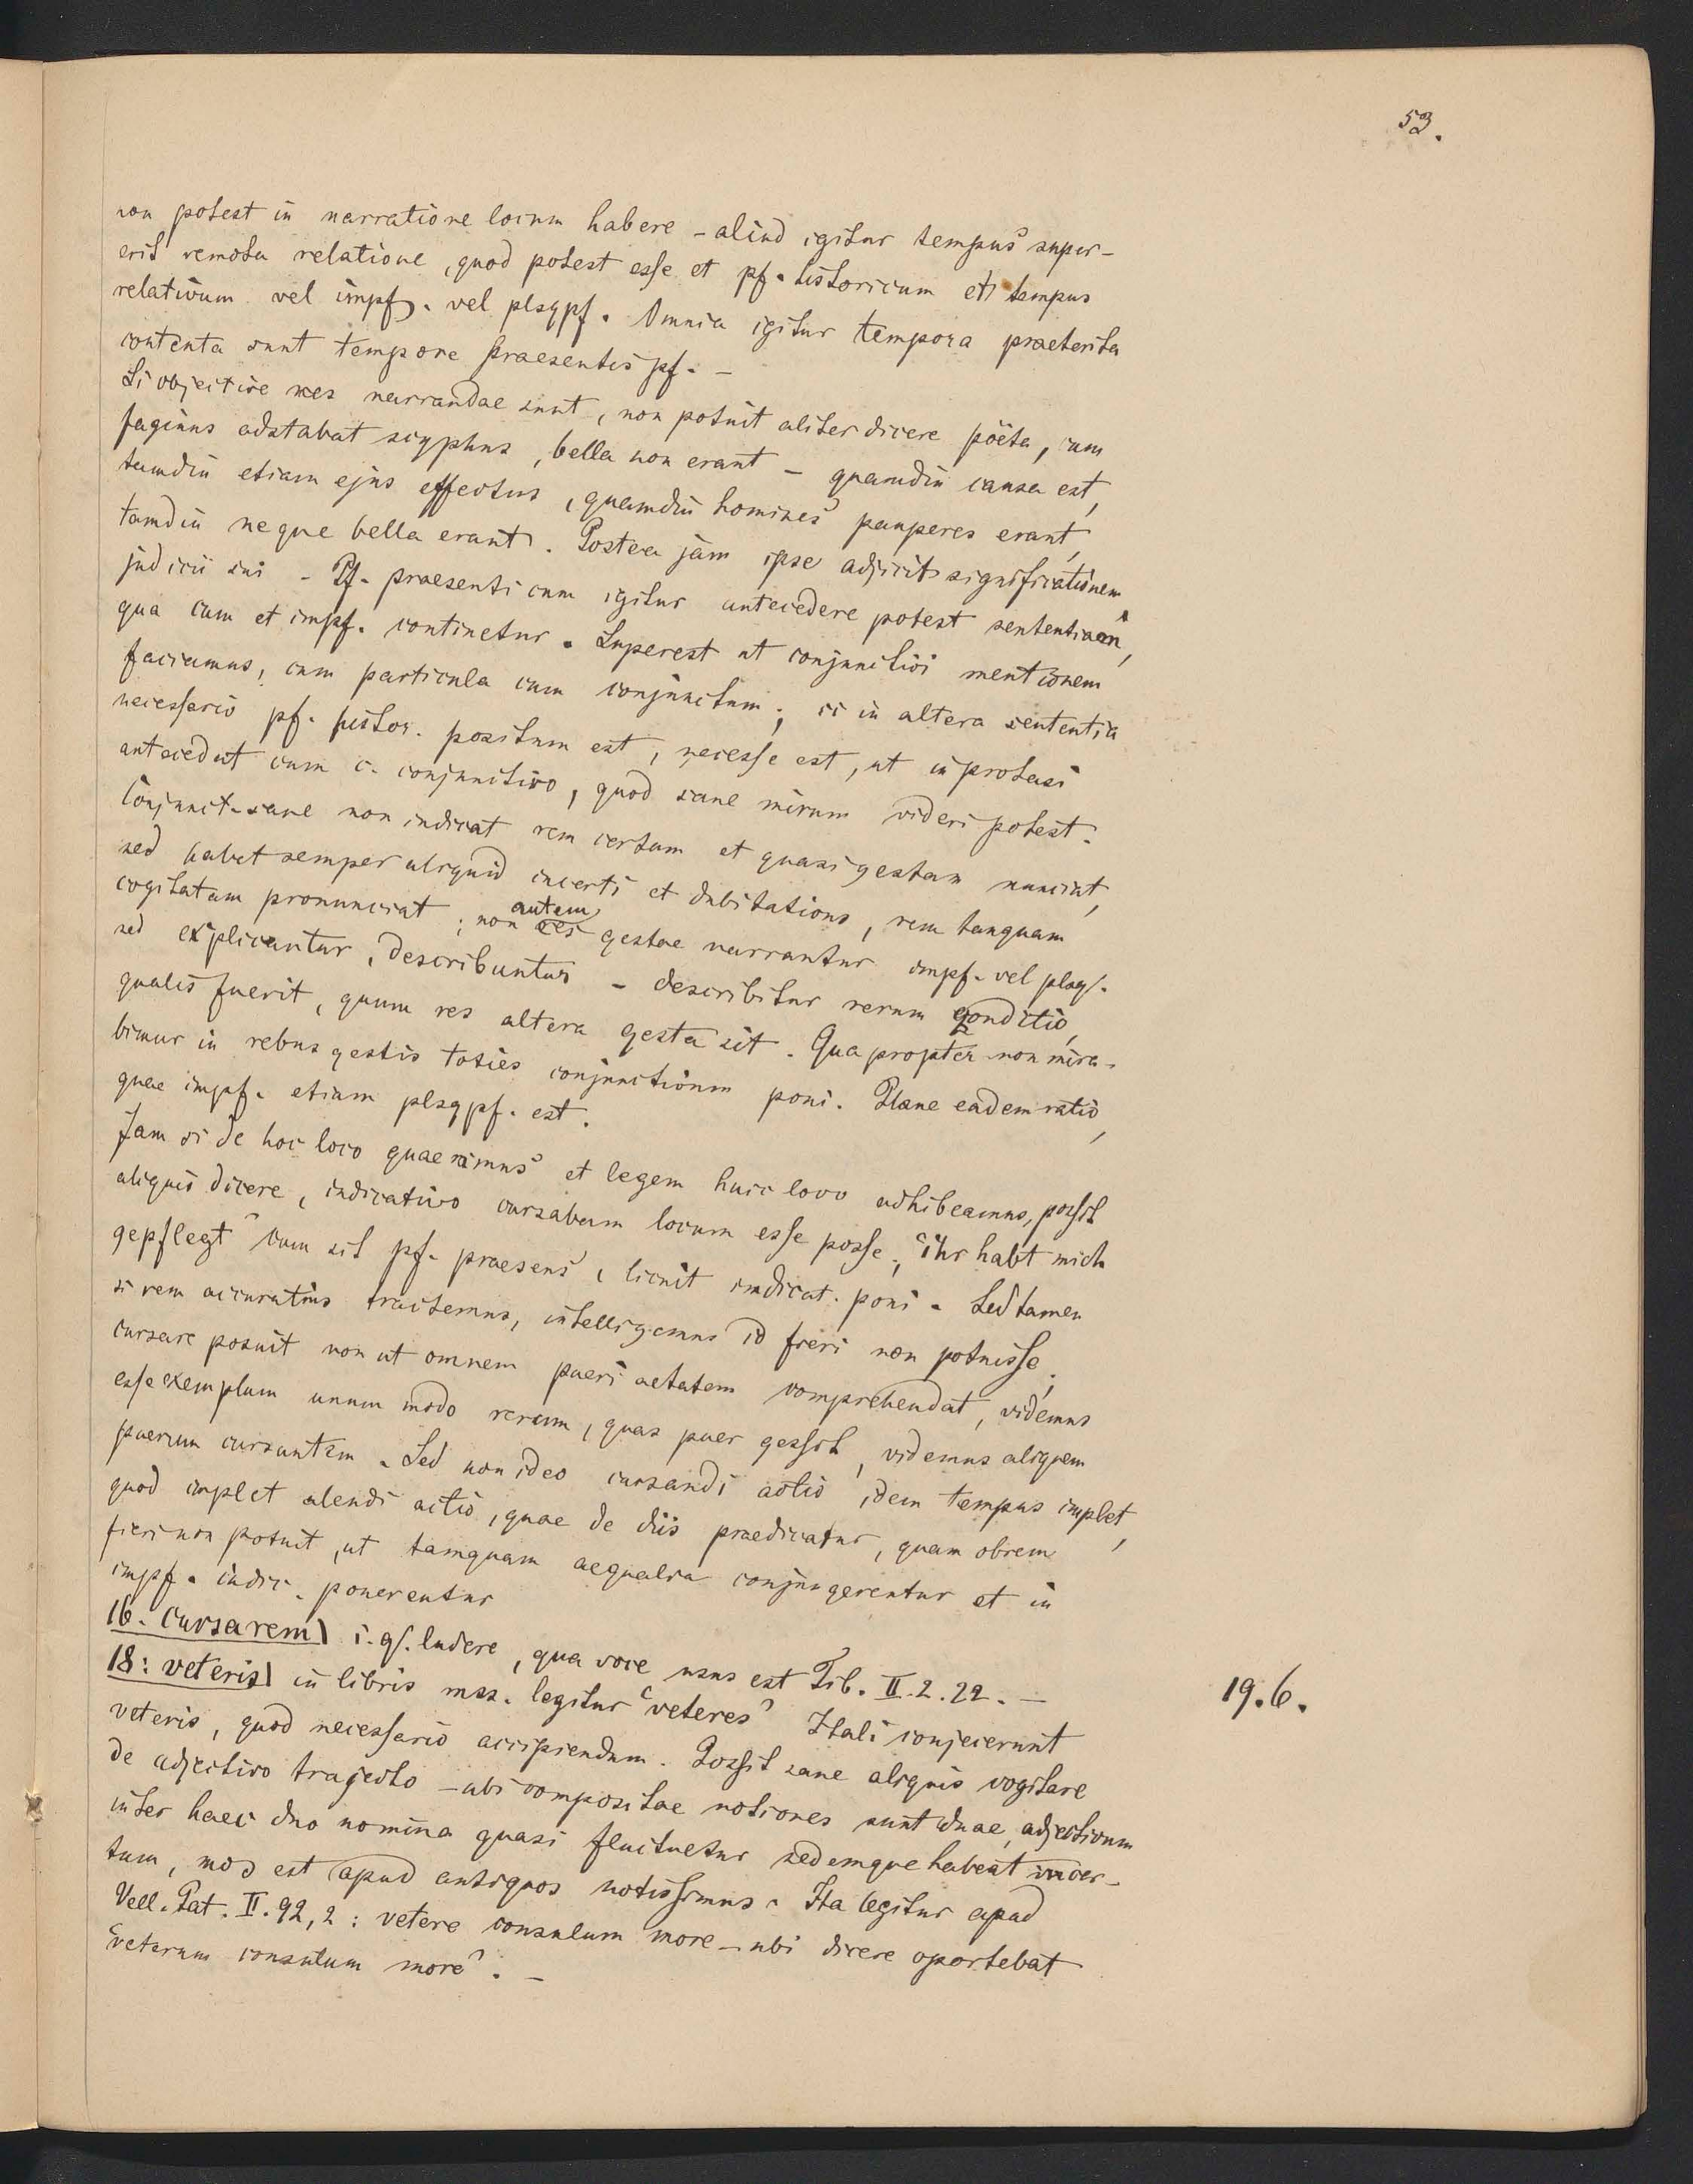 53.
non potest in narratione locum habere – aliud igitur tempus super-
erit remota relatione, quod potest esse et pf. historicum et tempus
relativum vel impf. vel plsqpf. Omnia igitur tempora praeterita
contenta sunt tempore praesentis pf. –
Si objective res narrandae sunt, non potuit aliter dicere poëta, cum
faginus adstabat scyphus, bella non erant – quamdiu causa est,
tamdiu etiam ejus effectus, quamdiu homines pauperes erant,
tamdiu neque bella erant. Postea jam ipse adjicit significationem
judicii sui – Pf. praesenti cum igitur antecedere potest sententiam,
qua cum et impf. continetur. Superest ut conjunctivi mentionem
faciamus, cum particula cum conjunctum; si in altera sententia
necessario pf. histor. positum est, necesse est, ut in protasi
antecedat cum c. conjunctivo, quod sane mirum videri potest.
Conjunct. sane non indicat rem certam et quasi gestam nunciat,
sed habet semper aliquid incerti et dubitations, rem tanquam
cogitatam pronunciat; non autem gestae narrantur impf. vel plsq.
sed explicantur, describuntur – describitur rerum conditio,
qualis fuerit, quum res altera gesta sit. Quapropter non mira-
bimur in rebus gestis toties conjunctivum poni. Plane eadem ratio,
quae impf. etiam plsqpf. est.
Jam si de hoc loco quaerimus et legem huic loco adhibeamus, possit
aliquis dicere, indicativo cursabam locum esse posse; "ihr habt mich
gepflegt" cum sit pf. praesens, licuit indicat. poni. Sed tamen
si rem accuratius tractemus, intelligemus id fieri non potuisse;
cursare posuit non ut omnem pueri aetatem comprehendat, videmus
esse exemplum unum modo rerum, quas puer gessit, videmus aliquem
puerum cursantem. Sed non ideo cursandi actio idem tempus implet,
quod implet alendi actio, quae de diis praedicatur, quam obrem
fieri non potuit, ut tamquam aequalia conjungerentur et in
impf. indic. ponerentur
16. Cursarem) i. q. ludere, qua voce usus est Tib. II. 2. 22. –
18: veteris) in libris mss. legitur "veteres" Itali conjecerunt
19. 6.
veteris, quod necessario accipiendum. Possit sane aliquis cogitare
de adjectivo trajecto – ubi compositae notiones sunt duae, adjectivum
inter haec duo nomina quasi fluctuetur sedemque habeat incer-
tam, mos est apud antiquos notissimus. Ita legitur apud
Vell. Pat. II. 92, 2: vetere consulum more – ubi dicere oportebat
"veterum consulum more". –